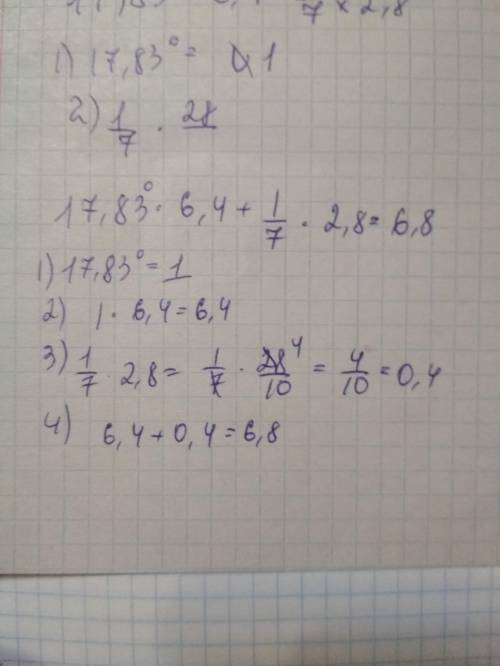 1) 17,83⁰ = 1
2) 1/7 · 28
17,83⁰ · 6,4 + 1/7 · 2,8 = 6,8
1) 17,83⁰ = 1
2) 1 · 6,4 = 6,4
3) 1/7 · 2,8 = 1/7 · 28/10 ⁴ = 4/10 = 0,4
4) 6,4 + 0,4 = 6,8